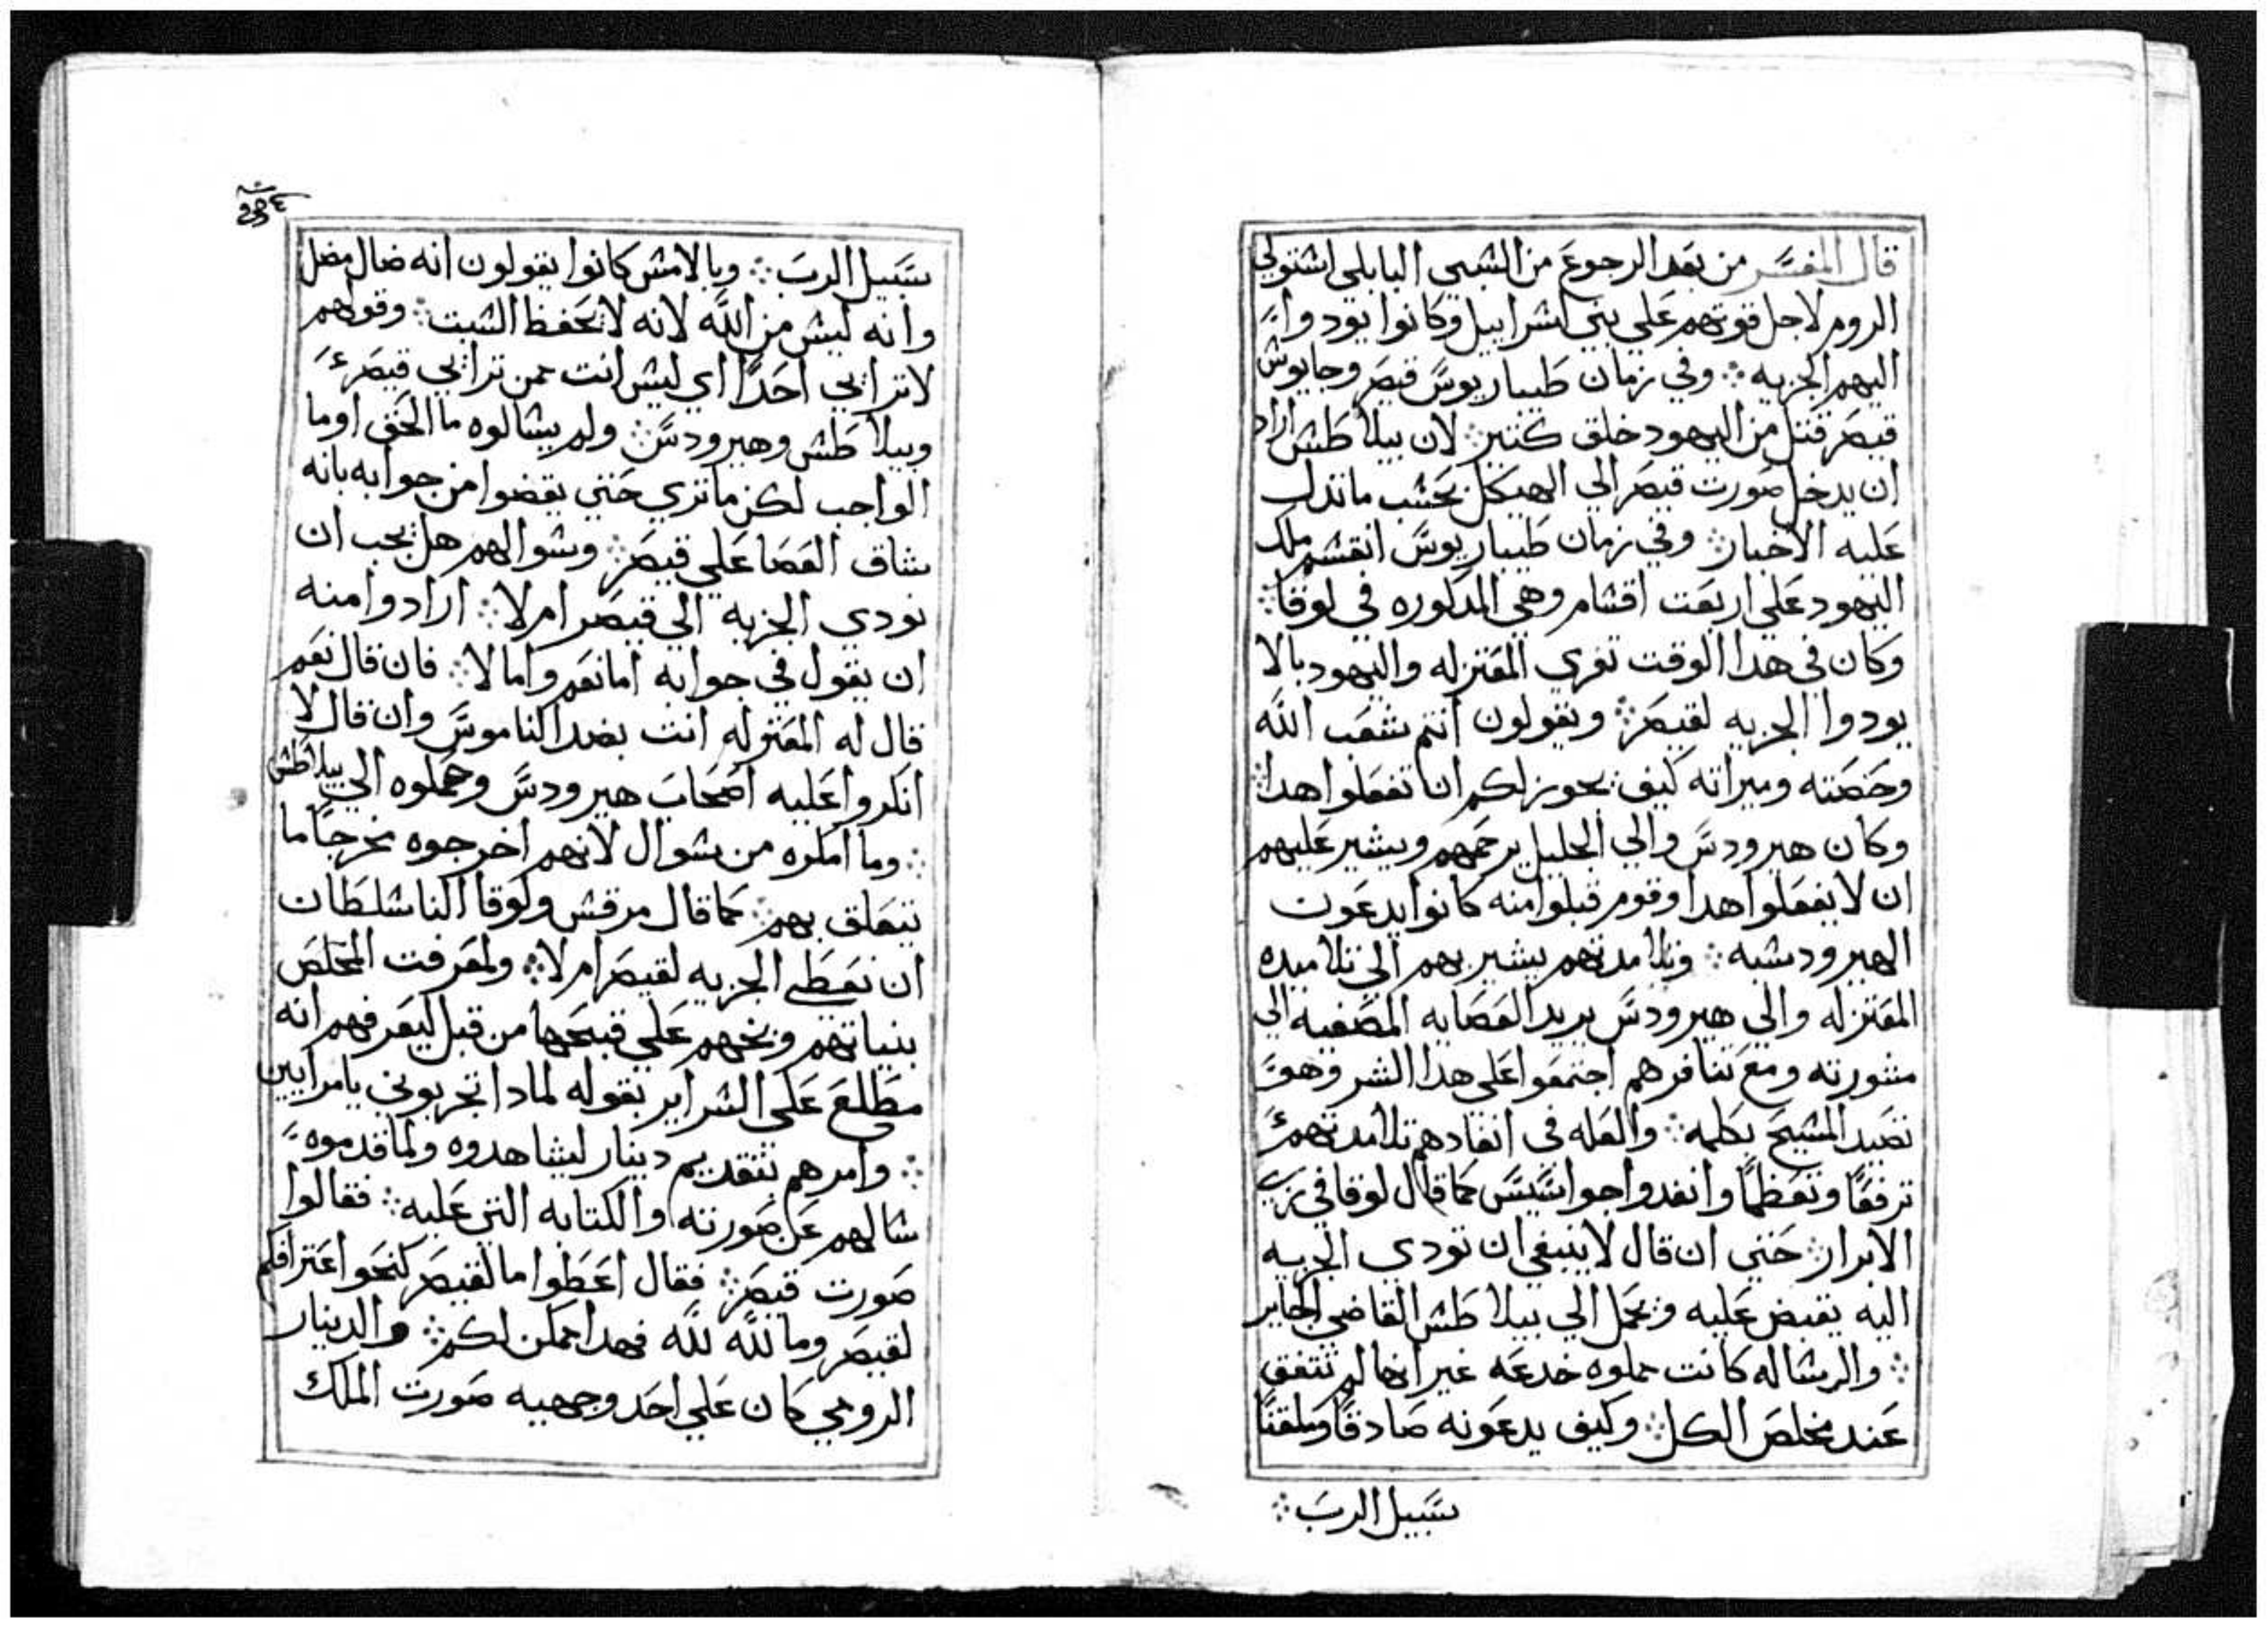 قال المفسر من بعد الرجوع من الشبي البابلي اشتولي
الروم لاجل قوتهم علي بني اشراييل وكانوا يودوا
اليهم الجزيه ؞ وفي زمان طيباريوس قيصر وجايوش
قيصر قتل من اليهود خلق كتير ؞ لان بيلاطش اراد
ان يدخل صورت قيصر الي الهيكل بحشب ما تدل
عليه الاخبار ؞ وفي زمان طيباريوس انقشم ملك
اليهود علي اربعت اقشام وهي المدكوره في لوقا ؞
وكان في هدا الوقت تغري المعتزله واليهود بالا
يودوا الجزيه لقيصر ؞ ويقولون انتم شعب الله
وخصته وميراته كيف يجوز لكم ان تفعلوا هدا ؞
وكان هيرودس والي الجليل يرحمهم ويشير عليهم
ان لا يفعلوا هدا وقوم قبلوا منه كانوا يدعون
الهيرودشيه ؞ وتلامدتهم يشير بهم الي تلاميده
المعتزله والي هيرودس يريد العصابه المصغيه الي
مشورته ومع تنافرهم اجتمعوا علي هدا الشر وهو
تصيد المشيح بكلمه ؞ والعله في انفادهم تلامدتهم
ترفعًا وتعظمًا وانفدوا جواسيس كما قال لوقا في زي
الابرار ؞ حتي ان قال لا ينبغي ان تودي الجزيه
اليه يقبض عليه ويحمل الي بيلاطش القاضي الجاير
؞ والرشاله كانت مملوه خدعه غير انها لم تتفق
عند مخلص الكل ؞ وكيف يدعونه صادقًا وملقنًا
سبيل الرب ؞
سبيل الرب ؞ وبالامش كانوا يقولون انه ضال مضل
وانه ليش من الله لانه لا يحفظ الشبت ؞ وقولهم
لا ترايي احدًا اي ليش انت ممن ترايي قيصر
وبيلاطش وهيرودس ؞ ولم يشالوه ما الحق او ما
الواجب لكن ما تري حتي يقضوا من جوابه بانه
شاق العصا علي قيصر ؞ وشوالهم هل يجب ان
نودي الجزيه الي قيصر ام لا ؞ ارادوا منه
ان يقول في جوابه اما نعم واما لا ؞ فان قال نعم
قال له المعتزله انت بضد الناموس وان قال لا
انكروا عليه اصحاب هيرودس وحملوه الي بيلاطش
؞ وما امكره من شوال لانهم اخرجوه مخرجًا ما
يتعلق بهم ؞ كما قال مرقش ولوقا النا شلطان
ان نعطي الجزيه لقيصر ام لا ؞ ولمعرفت المخلص
بنياتهم وبخهم علي قبحها من قبل ليعرفهم انه
مطلع علي الشراير بقوله لمادا تجربوني يا مرايين
؞ وامرهم بتقديم دينار ليشاهدوه ولما قدموه
شالهم عن صورته والكتابه التي عليه ؞ فقالوا
صورت قيصر ؞ فقال اعطوا ما لقيصر كنحو اعترافكم
لقيصر وما لله لله فهدا ممكن لكم ؞ والدينار
الرومي كان علي احد وجهيه صورت الملك